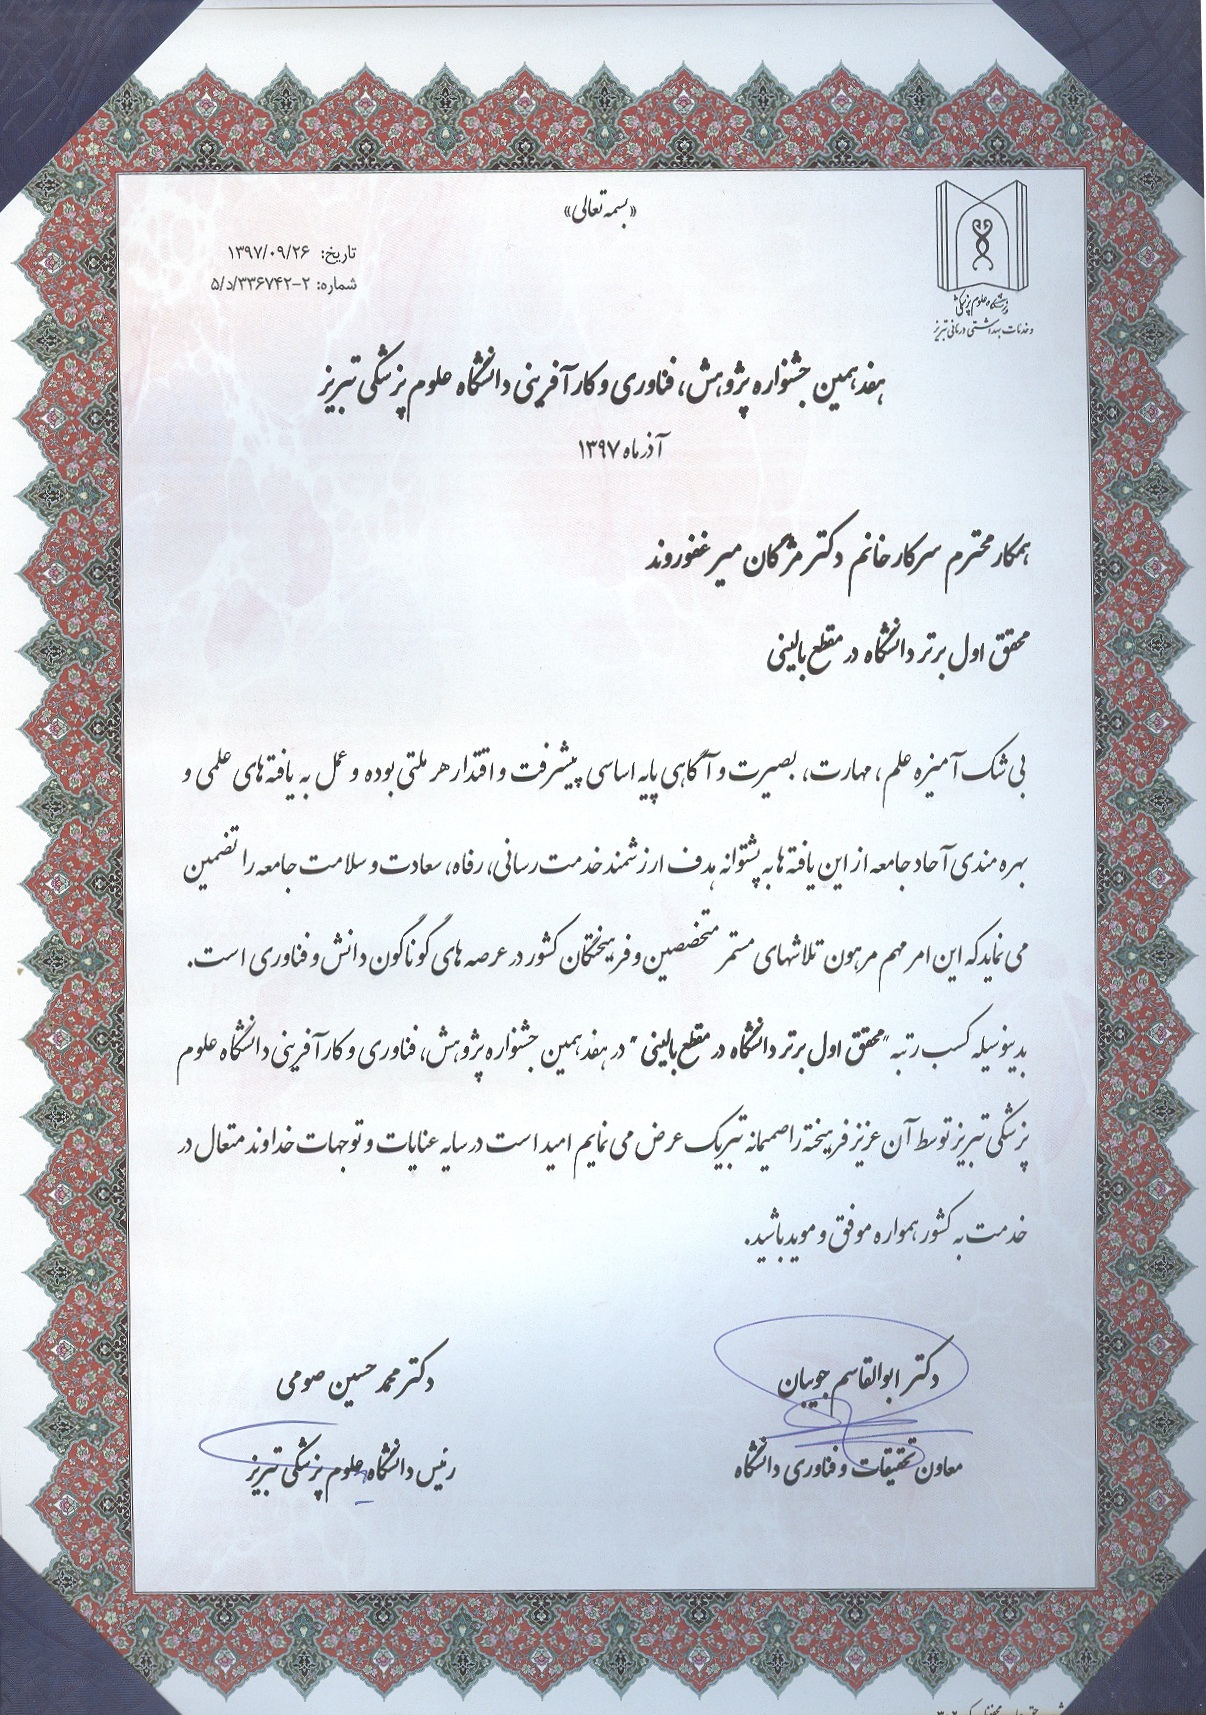 «بسمه تعالی»
تاریخ: ۱۳۹۷/۰۹/۲۶
شماره: ۲-۳۳۶۷۴۲/د/۵
دانشگاه علوم پزشکی
و خدمات بهداشتی درمانی تبریز
هفدهمین جشنواره پژوهش، فناوری و کارآفرینی دانشگاه علوم پزشکی تبریز
آذر ماه ۱۳۹۷
همکار محترم سرکار خانم دکتر مژگان میرغفوروند
محقق اول برتر دانشگاه در مقطع بالینی
بی شک آمیزه علم، مهارت، بصیرت و آگاهی پایه اساسی پیشرفت و اقتدار هر ملتی بوده و عمل به یافته های علمی و
بهره مندی آحاد جامعه از این یافته ها به پشتوانه هدف ارزشمند خدمت رسانی، رفاه، سعادت و سلامت جامعه را تضمین
می نماید که این امر مهم مرهون تلاشهای مستمر متخصصین و فرهیختگان کشور در عرصه های گوناگون دانش و فناوری است.
بدینوسیله کسب رتبه "محقق اول برتر دانشگاه در مقطع بالینی" در هفدهمین جشنواره پژوهش، فناوری و کارآفرینی دانشگاه علوم
پزشکی تبریز توسط آن عزیز فرهیخته را صمیمانه تبریک عرض می نمایم امید است در سایه عنایات و توجهات خداوند متعال در
خدمت به کشور همواره موفق و موید باشید.
دکتر ابوالقاسم جویبان
معاون تحقیقات و فناوری دانشگاه
دکتر محمد حسین صومی
رئیس دانشگاه علوم پزشکی تبریز